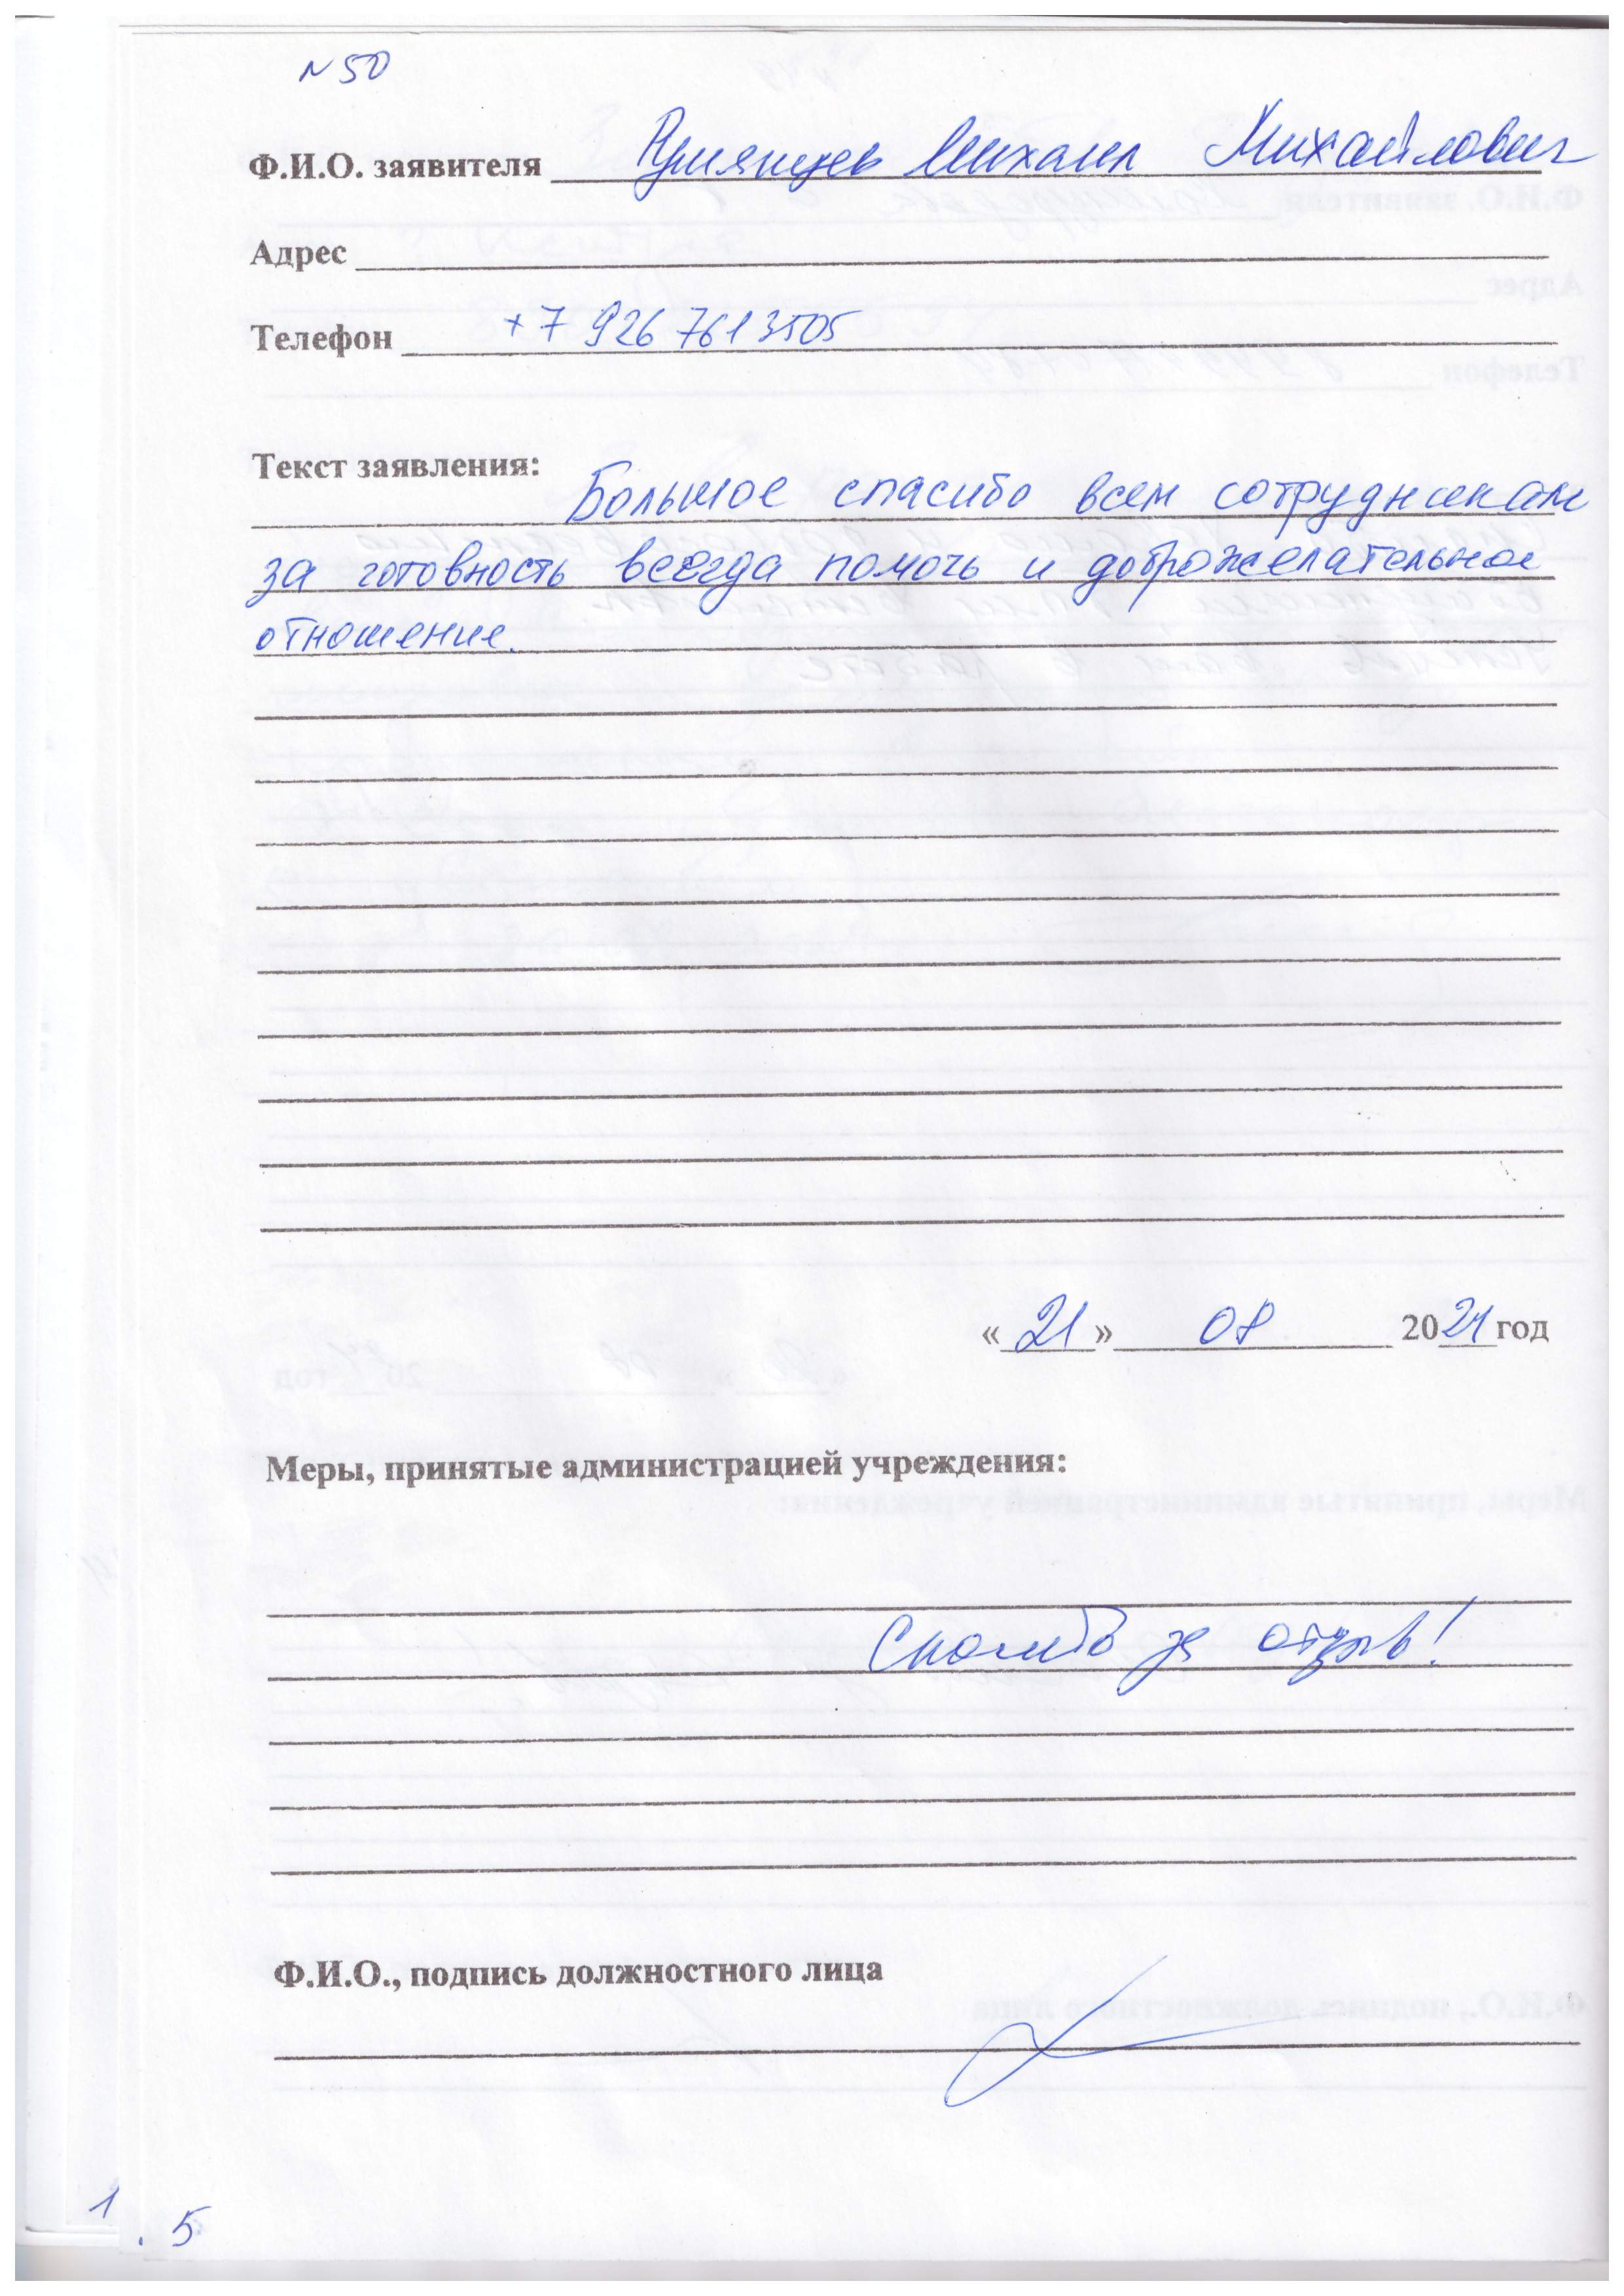 N 50
Ф.И.О. заявителя Михаил Михайлович
Адрес
Телефон +7 926 7613505
Текст заявления:
Большое спасибо всем сотрудникам
за готовность всегда помочь и доброжелательное
отношение.
«21» 08 2021 год
Меры, принятые администрацией учреждения:
Спасибо за отзыв!
Ф.И.О., подпись должностного лица
1
5